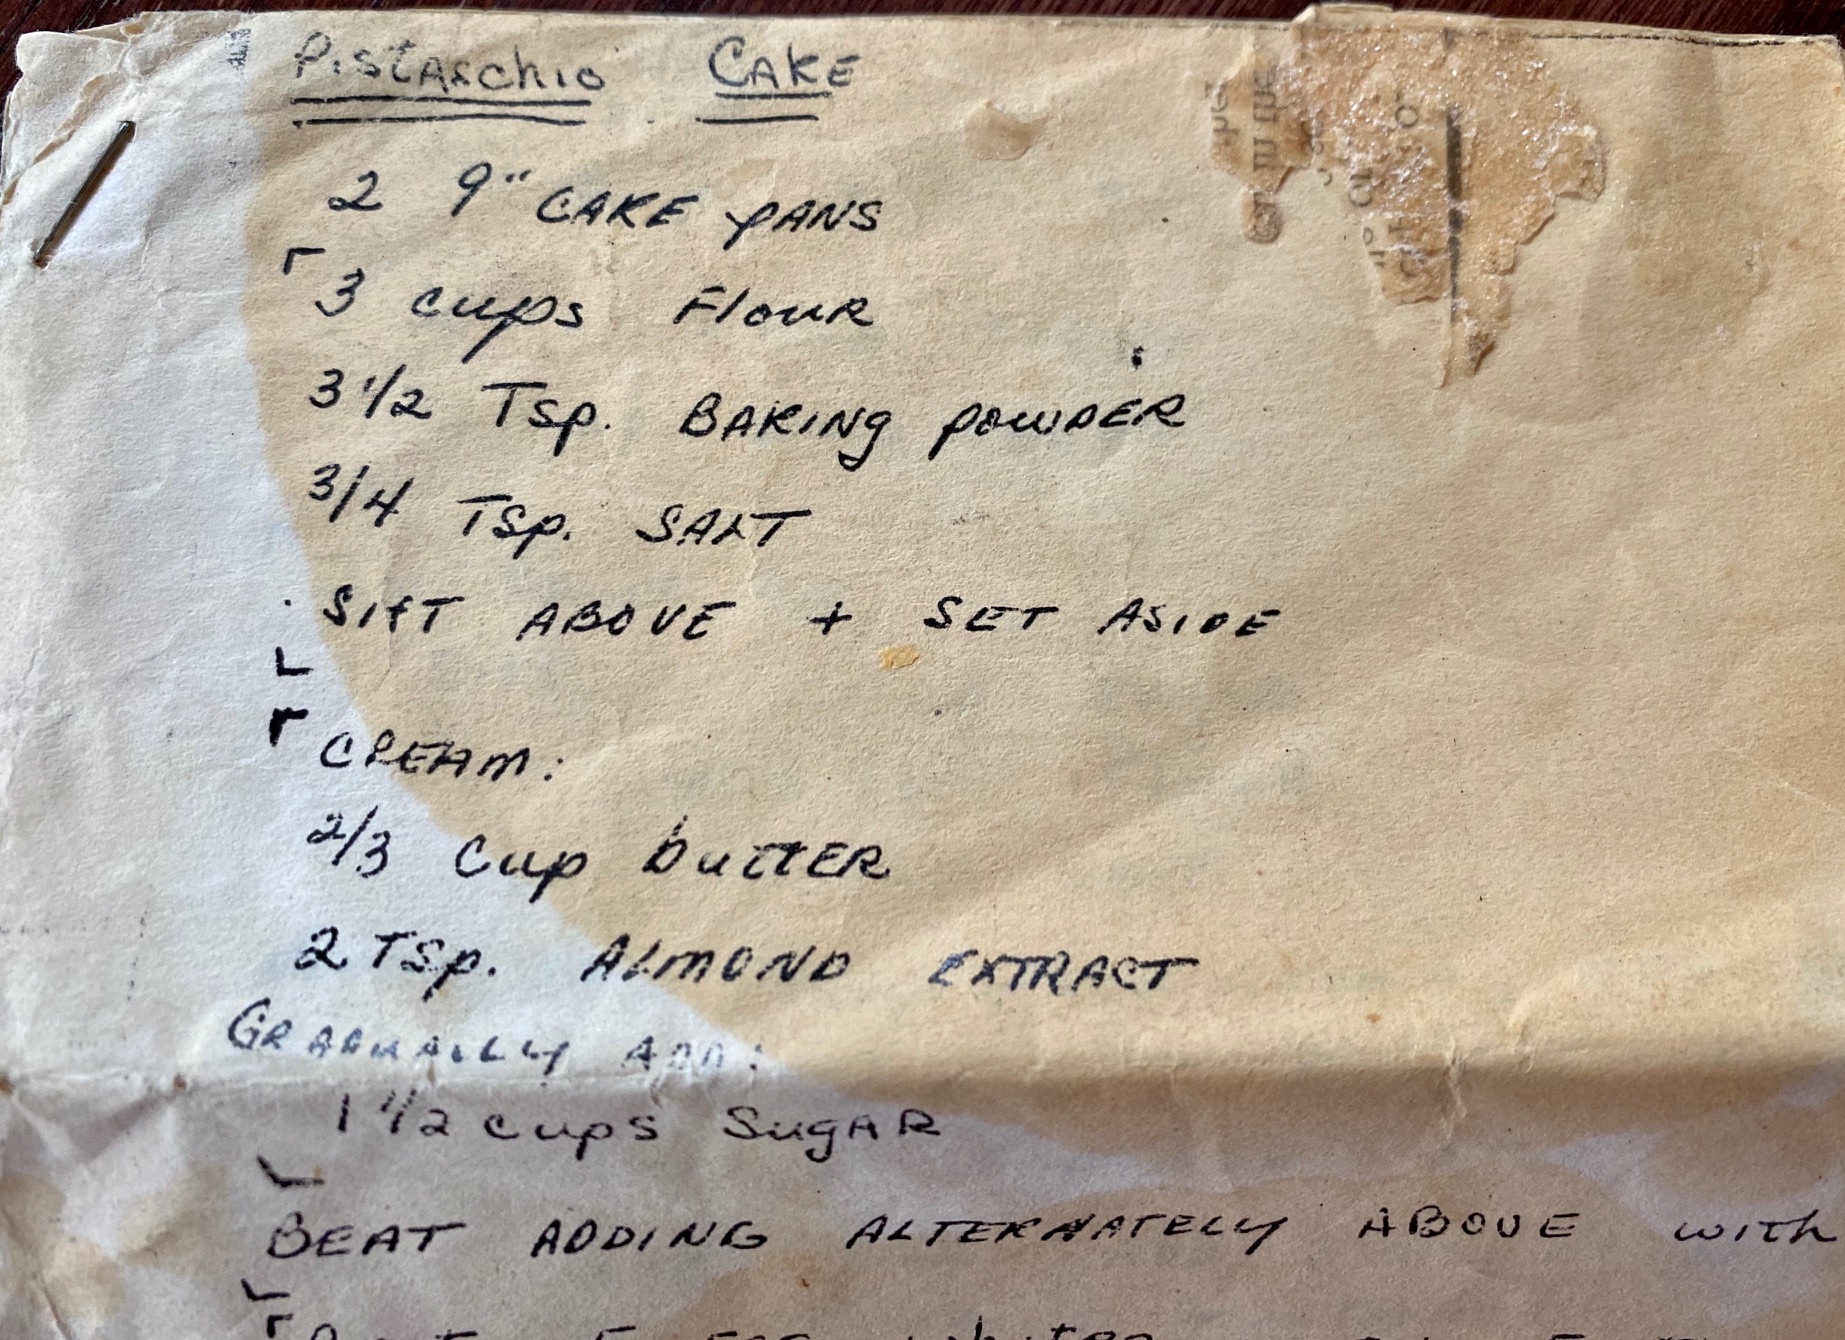 Pistaschio Cake
2 9" CAKE PANS
3 cups Flour
3 1/2 Tsp. BAKING POWDER
3/4 Tsp. SALT
SIFT ABOVE + SET ASIDE
CREAM:
2/3 cup butter
2 Tsp. ALMOND EXTRACT
GRADUALLY ADD:
1 1/2 cups Sugar
BEAT ADDING ALTERNATELY ABOVE with